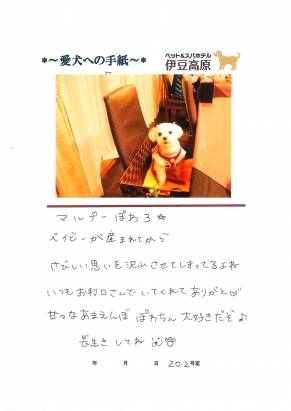 *～愛犬への手紙～*
ペット&スパホテル
伊豆高原
マルプーぽぁろ☆
ベイビーが産まれてから
さびしい思いを沢山させてしまってるよね
いつもお利口さんでいてくれてありがと♡
甘ったなあまえんぼ ぽぁちん 大好きだぞ♪
長生きしてね
年 月 日 202号室